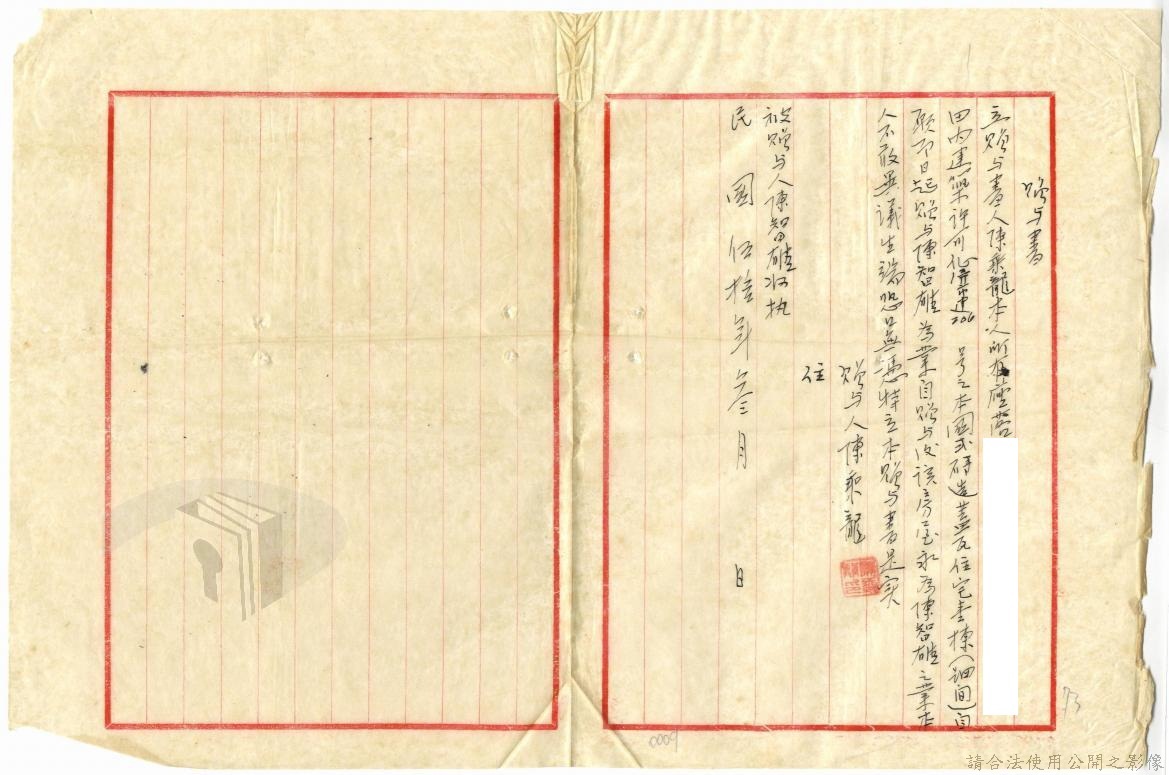 贈与書
立贈与書人陳乘龍本人所有座落
田内建築許可 建206 号之本國式磚造蓋瓦住宅壹棟(四間)自
即日起贈与陳智雄為業自贈与後該房屋永為陳智雄之業本
人不敢異議生端恐口無憑特立本贈与書是实
贈与人陳乘龍
住
被贈与人陳智雄收执
民國伍拾年叁月 日
73
0009
請合法使用公開之影像